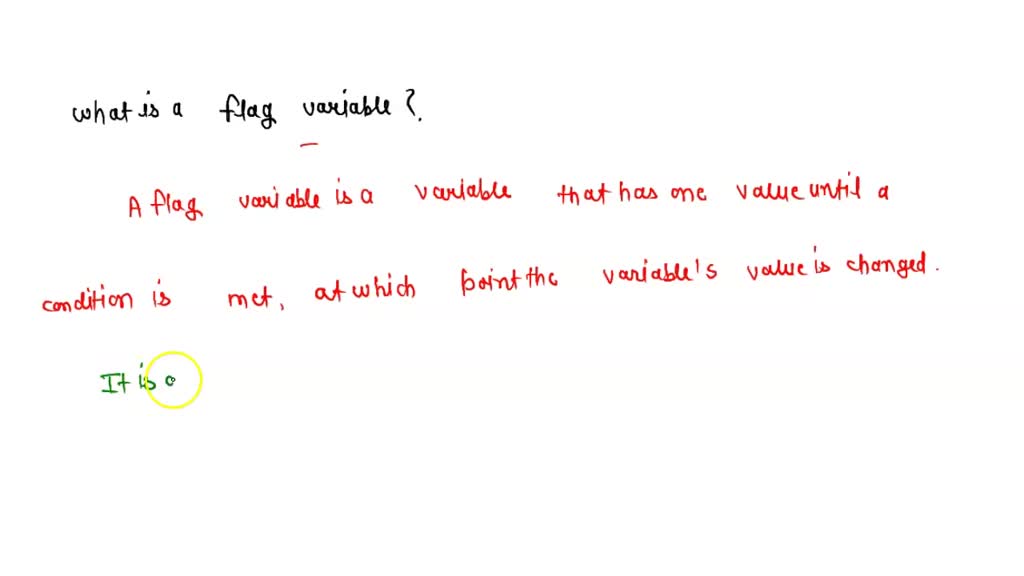 what is a flag variable?
A flag variable is a variable that has one value until a
condition is met, at which point the variable's value is changed.
It is a